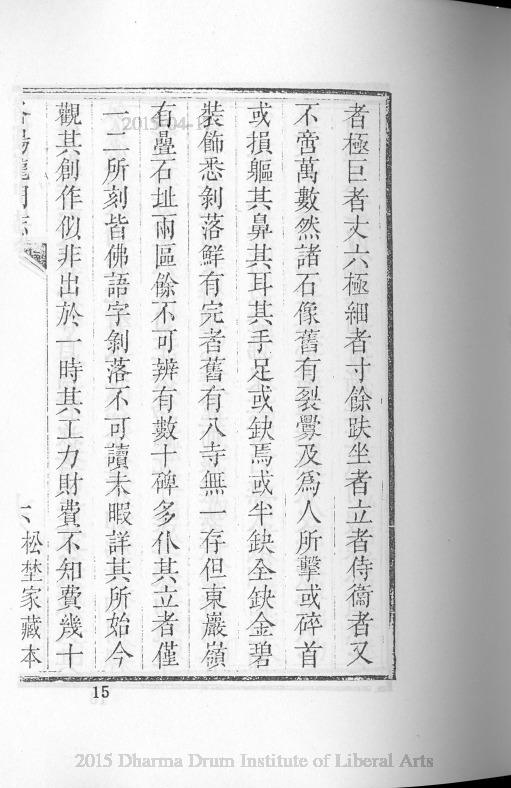 者極巨者丈六極細者寸餘趺坐者立者侍衞者又
不啻萬數然諸石像舊有裂釁及爲人所擊或碎首
或損軀其鼻其耳其手足或缺焉或半缺全缺金碧
裝飾悉剝落鮮有完者舊有八寺無一存但東巖嶺
有疊石址兩區餘不可辨有數十碑多仆其立者僅
一二所刻皆佛語字剝落不可讀未暇詳其所始今
觀其創作似非出於一時其工力財費不知費幾十
松埜家藏本
15
2015-04-1
2015 Dharma Drum Institute of Liberal Arts